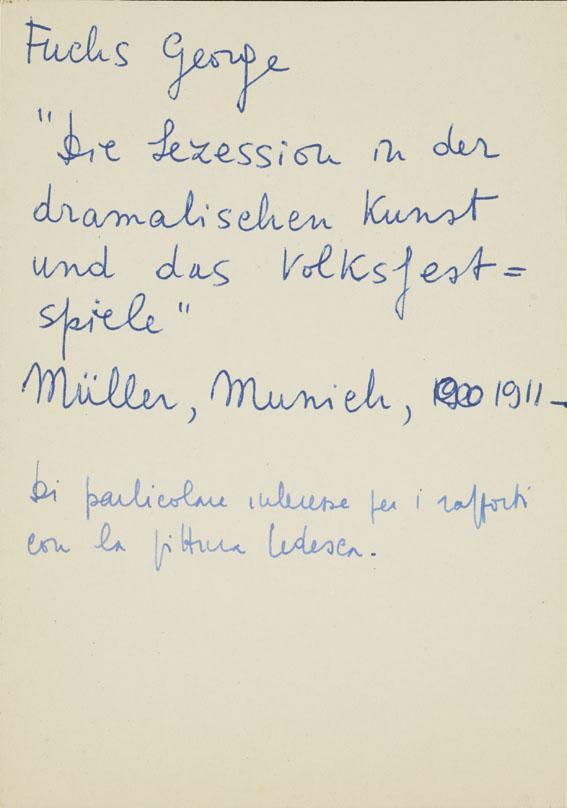 Fuchs George
"Die Sezession in der
dramatischen Kunst
und das Volksfest=
spiele"
Müller, Munich, 1911 -
Di particolare interesse per i rapporti
con la pittura tedesca.